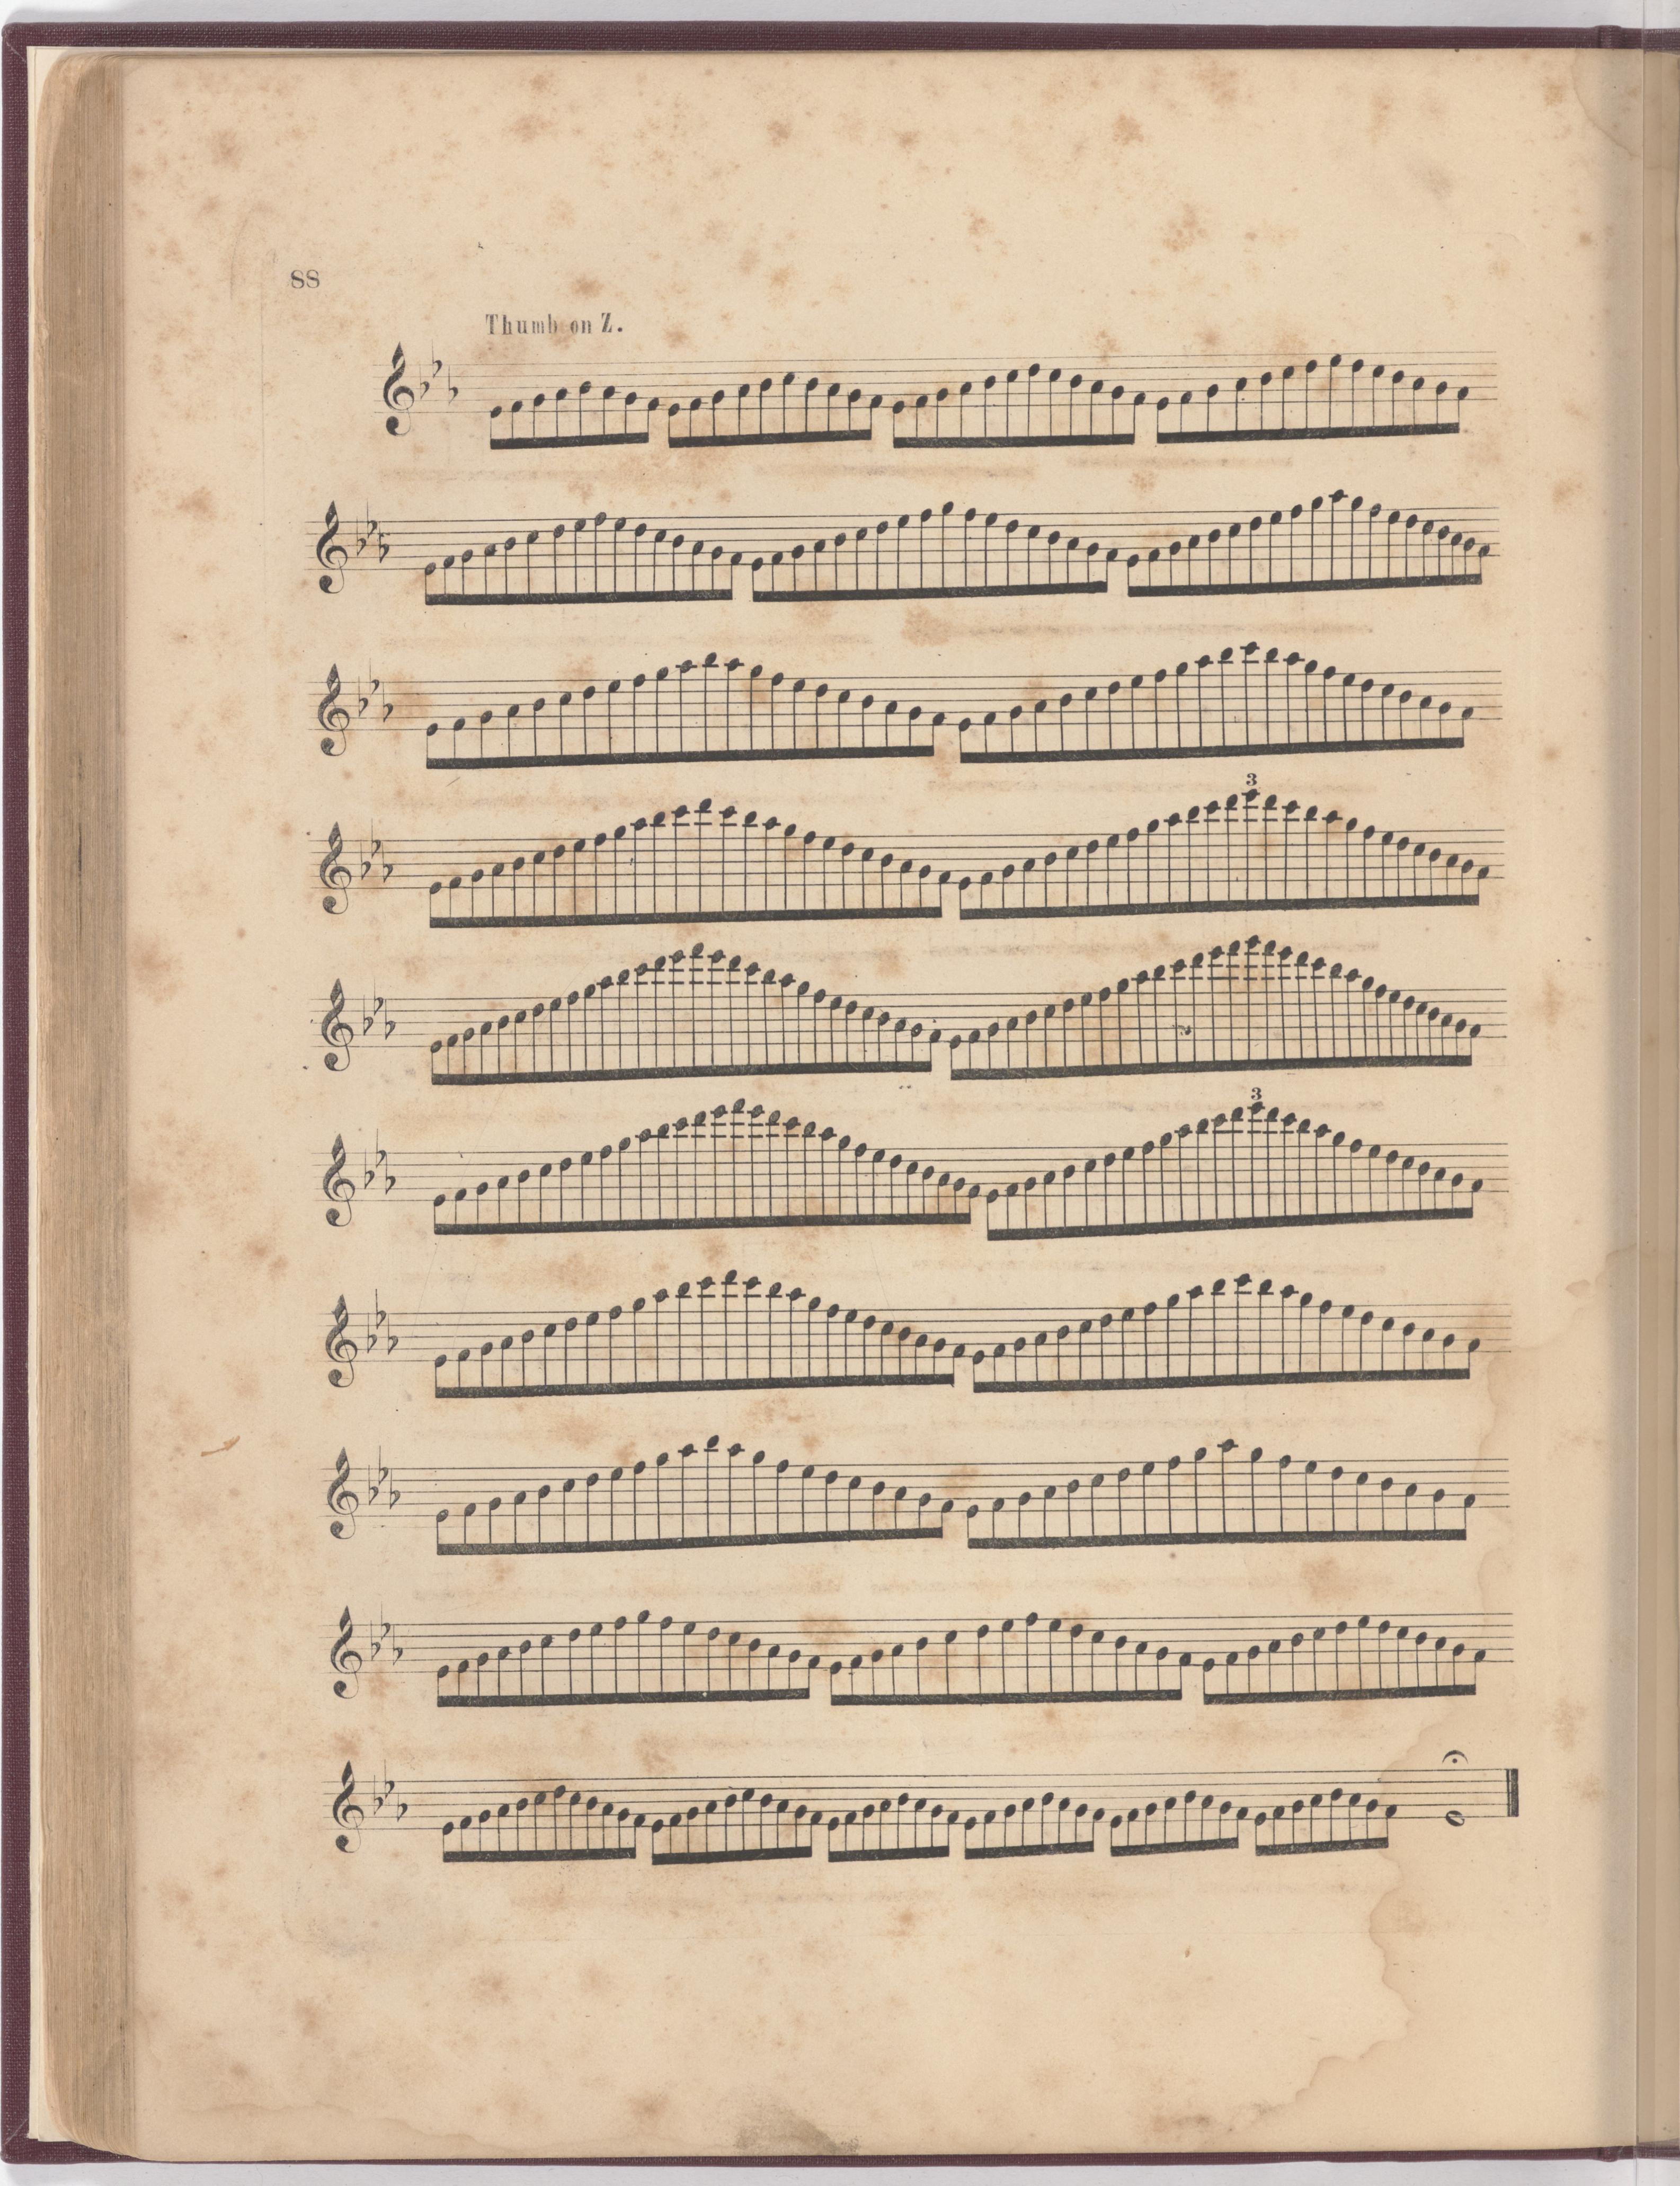 88
Thumb on Z.
3
3